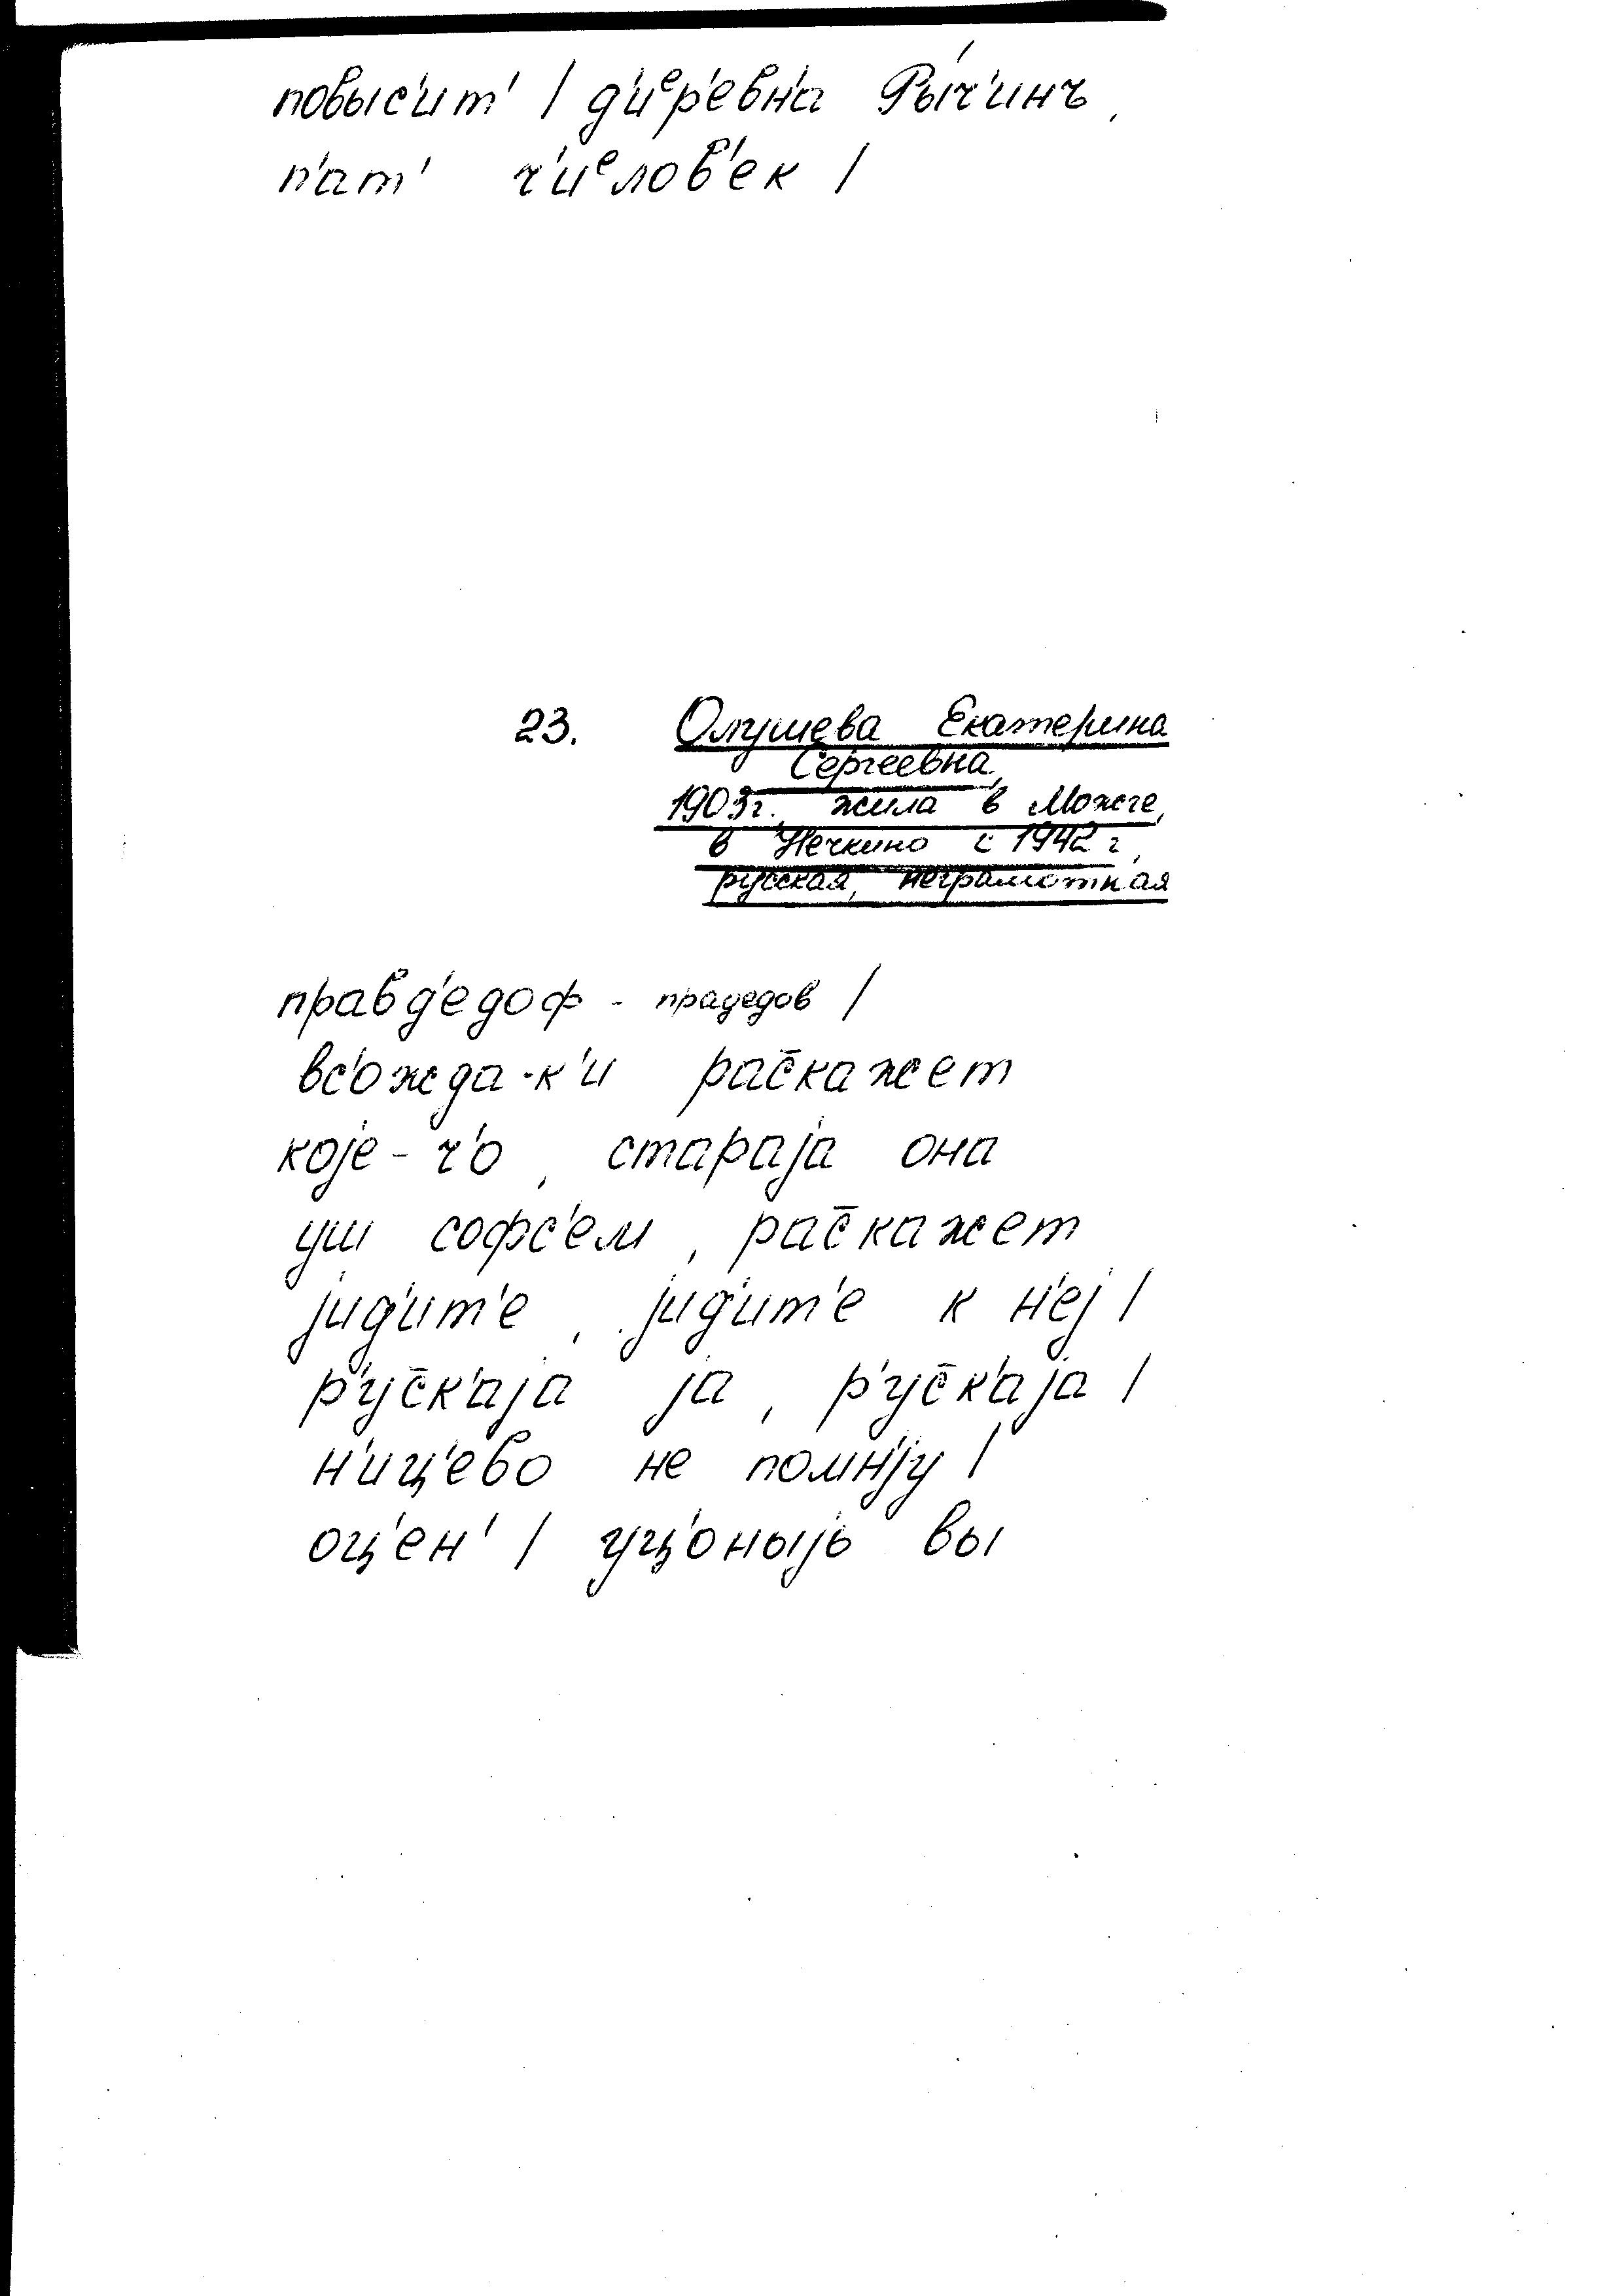 повыс'ит' / д'иᵉр'евн'а Ры́ч'инъ,
п'ат' ч'иᵉлов'ек /
23. Олушева Екатерина
Сергеевна,
1903г. жила в Можге,
в Нечкино с 1942 г,
русская, неграмотная
правд'едоф - прадедов /
вс'ожда-к'и рас̄кажет
која-ч'о, стараја она
уш софс'ем, рас̄кажет
јид'ит'е, јид'ит'е к н'еј /
р'ус̄к'аја ја, р'ус̄к'аја /
н'иц'ево не помн'ју /
оц'ен' / уц'оныјь вы